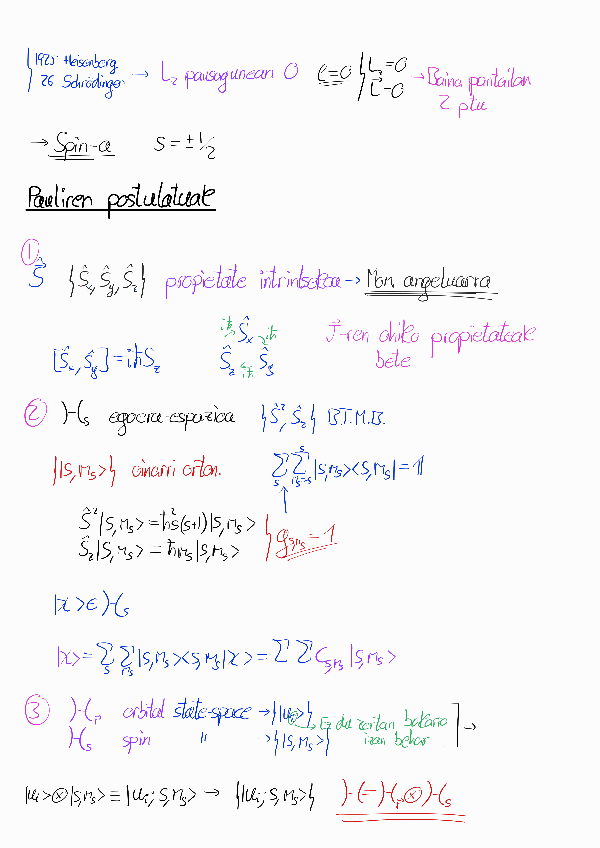 {1925 Heisenberg
26 Schrödinger → L_z pausagunean 0 l=0 {L_z=0
L⃗=0 → Baina pantailan
2 pltu
→ Spin-a S = ± 1/2
Pauliren postulatuak
①
Ŝ {Ŝ_x, Ŝ_y, Ŝ_z} propietate intrintsekoa → Mom. angeluarra
[Ŝ_x, Ŝ_y] = iħŜ_z iħ Ŝ_x iħ Ŝ_z iħ Ŝ_y J⃗-ren ohiko propietateak
bete
② H_s egoera-espazioa {Ŝ², Ŝ_z} B.T.M.B.
{|s,m_s>} oinarri orton. Σ_s Σ_{m_s=-s}^{s} |s,m_s><s,m_s| = 1
Ŝ²|s,m_s> = ħ²s(s+1)|s,m_s>
Ŝ_z|s,m_s> = ħm_s|s,m_s> {g_{s,m_s} = 1
|χ> ∈ H_s
|χ> = Σ_s Σ_{m_s} |s,m_s><s,m_s|χ> = Σ Σ C_{s,m_s} |s,m_s>
③ H_r orbital state-space → {|u_i>} → Ez du zertan bakarra
H_s spin " → {|s,m_s>} izan behar ] →
|u_i> ⊗ |s,m_s> ≡ |u_i; s,m_s> → {|u_i; s,m_s>} H = H_r ⊗ H_s